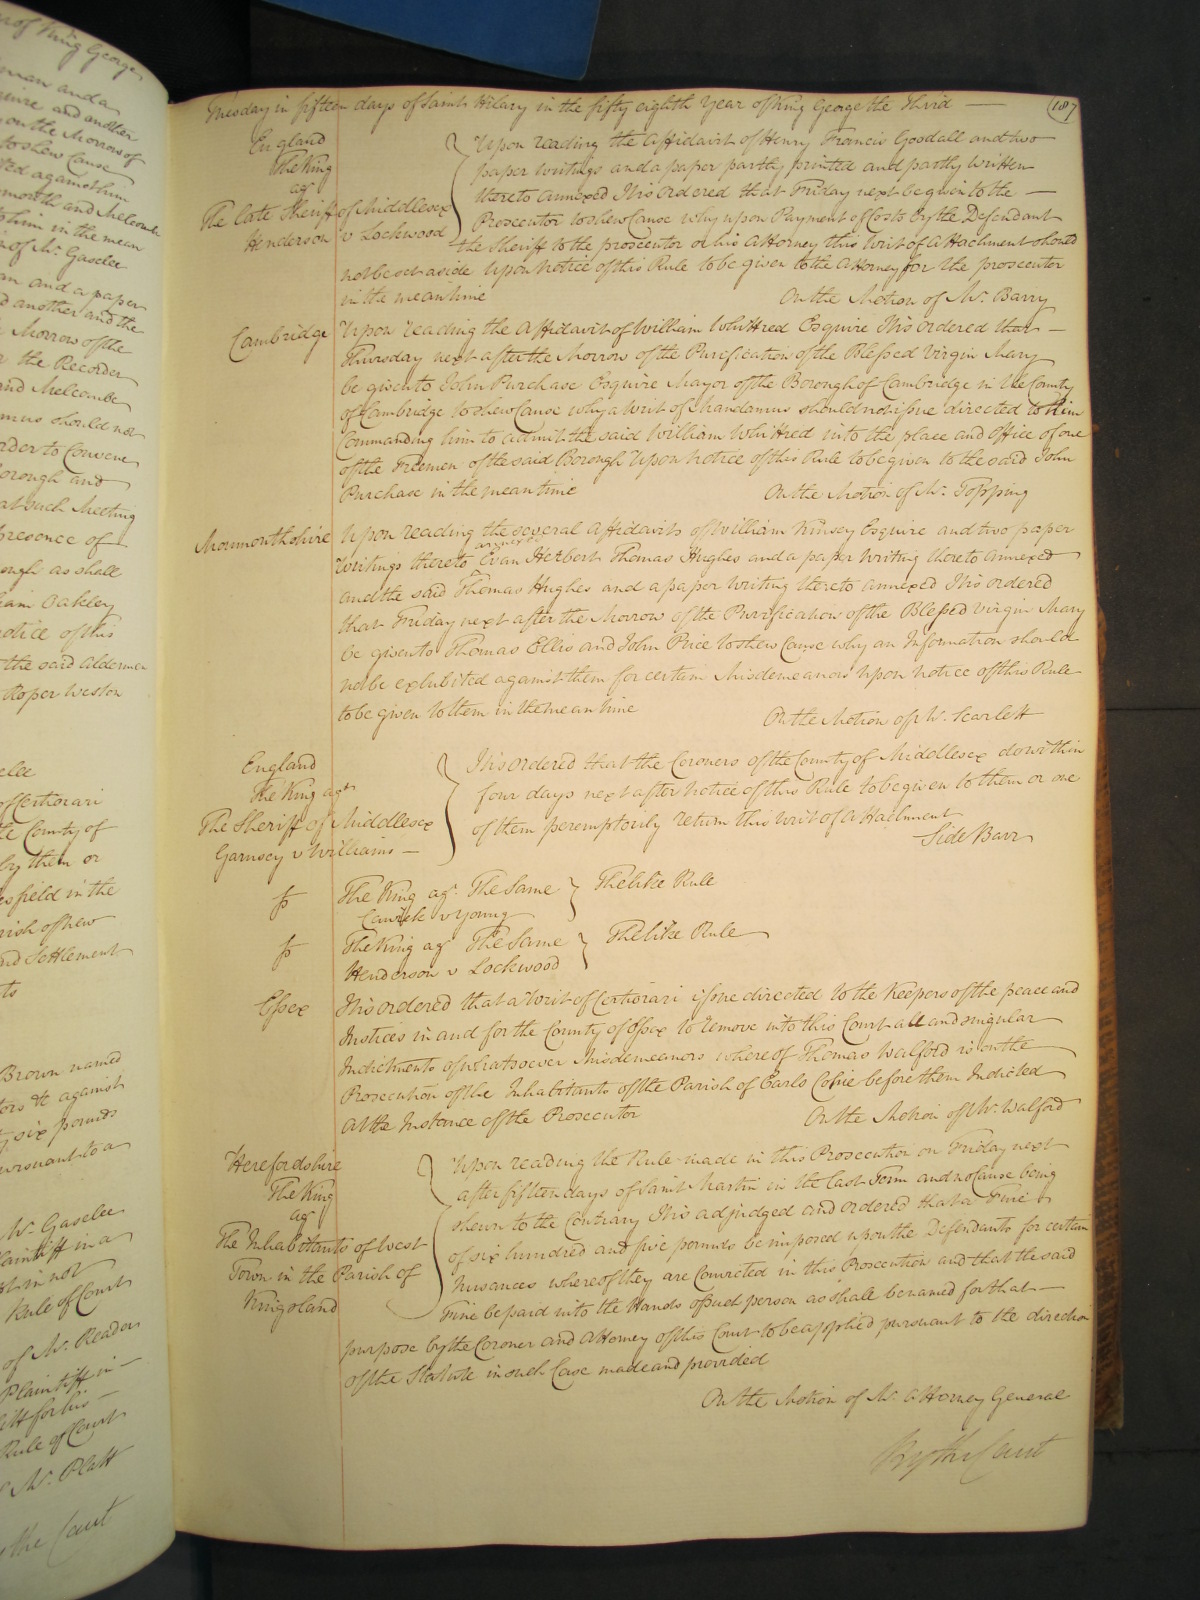 of King George
man and a
quire and another
on the Morrow of
to shew Cause
against him
mouth and Melcombe
him in the mean
of Mr. Gaselee
and a paper
another and the
Morrow of the
the Recorder
and Melcombe
mus should not
order to Convene
orough and
at such Meeting
presence of
ough as shall
William Oakley
notice of this
the said Aldermen
Roper Weston
of Certiorari
the County of
by them or
field in the
rish of New
and Settlement
Brown named
tors &c against
six pounds
pursuant to a
Mr. Gaselee
Plaintiff in a
not
Rule of Court
of Mr. Reader
Plaintiff in
for his
Rule of Court
Mr. Platt
the Court
187
Tuesday in fifteen days of Saint Hilary in the fifty eighth Year of King George the Third
England
The King
agt
The late Sheriff of Middlesex
Henderson v Lockwood
Upon reading the Affidavit of Henry Francis Goodall and two
paper writings and a paper partly printed and partly written
thereto annexed It is Ordered that Friday next be given to the
Prosecutor to shew Cause why upon Payment of Costs by the Defendant
the Sheriff to the prosecutor or his Attorney this Writ of Attachment should
not be set aside Upon notice of this Rule to be given to the Attorney for the prosecutor
in the mean time
On the Motion of Mr. Barry
Cambridge
Upon reading the Affidavit of William Whittred Esquire It is Ordered that
Thursday next after the Morrow of the Purification of the Blessed Virgin Mary
be given to John Purchase Esquire Mayor of the Borough of Cambridge in the County
of Cambridge to shew Cause why a Writ of Mandamus should not issue directed to him
Commanding him to admit the said William Whittred into the place and Office of one
of the Freemen of the said Borough Upon notice of this Rule to be given to the said John
Purchase in the mean time
On the Motion of Mr. Topping
Monmouthshire
Upon reading the several Affidavits of William Kinsey Esquire and two paper
annexed
Writings thereto Evan Herbert Thomas Hughes and a paper Writing thereto annexed
and the said Thomas Hughes and a paper Writing thereto annexed It is Ordered
that Friday next after the Morrow of the Purification of the Blessed Virgin Mary
be given to Thomas Ellis and John Price to shew Cause why an Information should
not be exhibited against them for certain Misdemeanors Upon notice of this Rule
to be given to them in the mean time
On the Motion of Mr. Scarlett
England
The King agt
The Sheriff of Middlesex
Garnsey v Williams
It is ordered that the Coroners of the County of Middlesex do within
four days next after notice of this Rule to be given to them or one
of them peremptorily return this writ of Attachment
Side Barr
The King agt. The Same
The like Rule
v Young
The King agt The Same
The like Rule
Henderson v Lockwood
Essex
It is ordered that a Writ of Certiorari issue directed to the Keepers of the peace and
Justices in and for the County of Essex to remove into this Court all and singular
Indictments of whatsoever Misdemeanors whereof Thomas Walford is on the
Prosecution of the Inhabitants of the Parish of Earls Colne before them Indicted
at the Instance of the Prosecutor
On the Motion of Mr. Walford
Herefordshire
The King
agt
The Inhabitants of West
Town in the Parish of
Kingsland
Upon reading the Rule made in this Prosecution on Friday next
after fifteen days of Saint Martin in the last Term and no Cause being
shewn to the Contrary It is adjudged and Ordered that a Fine
of six hundred and five pounds be imposed upon the Defendants for certain
Nusances whereof they are Convicted in this Prosecution and that the said
Fine be paid into the Hands of such person as shall be named for that
purpose by the Coroner and Attorney of this Court to be applied pursuant to the direction
of the Statute in such Case made and provided
On the Motion of Mr. Attorney General
By the Court